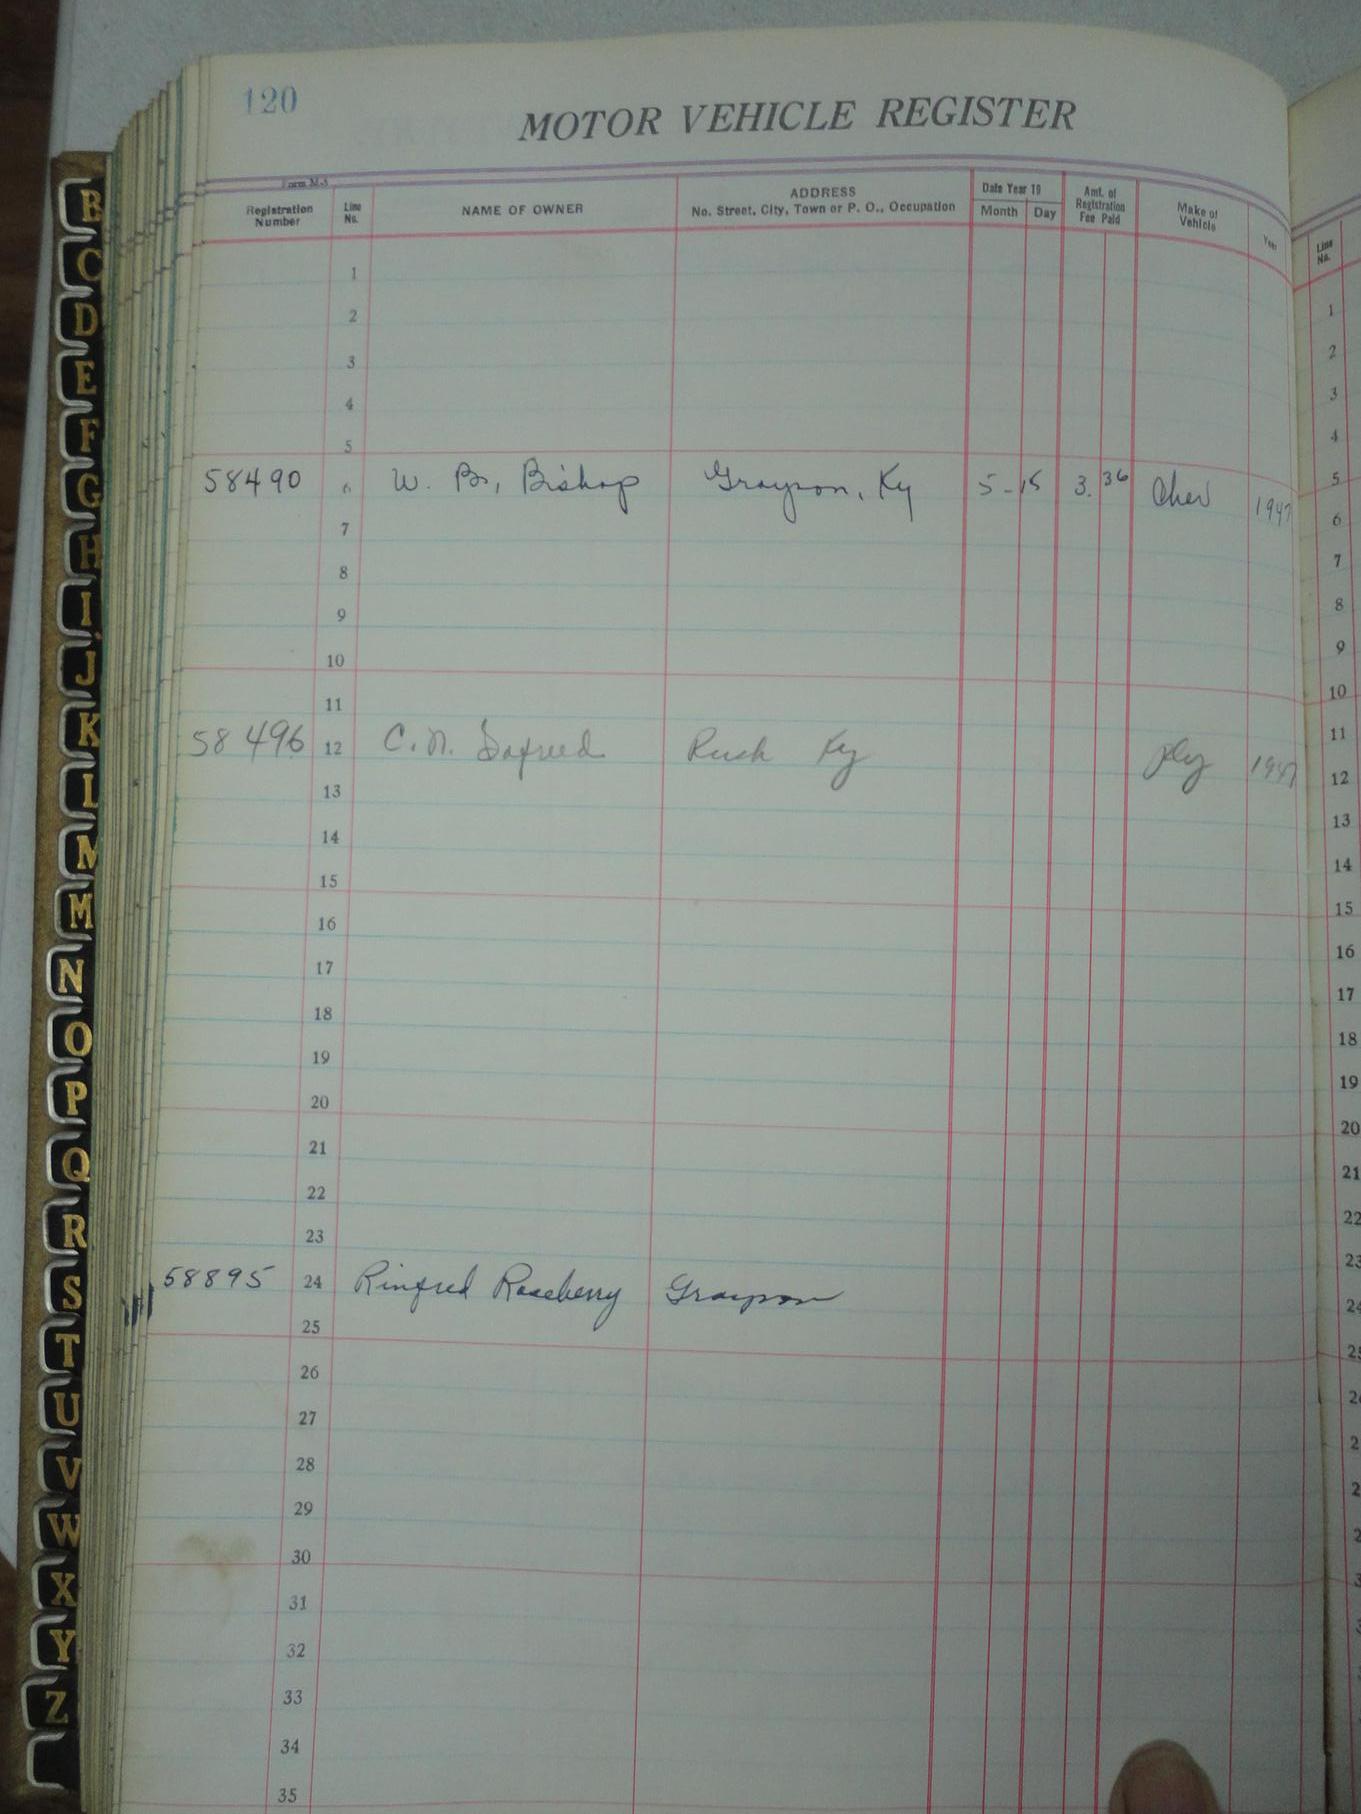 120
MOTOR VEHICLE REGISTER
Form M-3
Registration Number Line No. NAME OF OWNER ADDRESS No. Street, City, Town or P. O., Occupation Date Year 19 Month Day Amt. of Registration Fee Paid Make of Vehicle Year Line No.
1
2 1
3 2
4 3
5 4
58490 6 W. B., Bishop Grayson, Ky 5-15 3.36 Chev 1947 5
7 6
8 7
9 8
10 9
11 10
58496 12 C. N. Rush Ky Ply 1947 11
13 12
14 13
15 14
16 15
17 16
18 17
19 18
20 19
21 20
22 21
23 22
58895 24 Rinfred Roseberry Grayson 23
25 24
26 25
27
28
29
30
31
32
33
34
35
B
C
D
E
F
G
H
I
J
K
L
M
M
N
O
P
Q
R
S
T
U
V
W
X
Y
Z